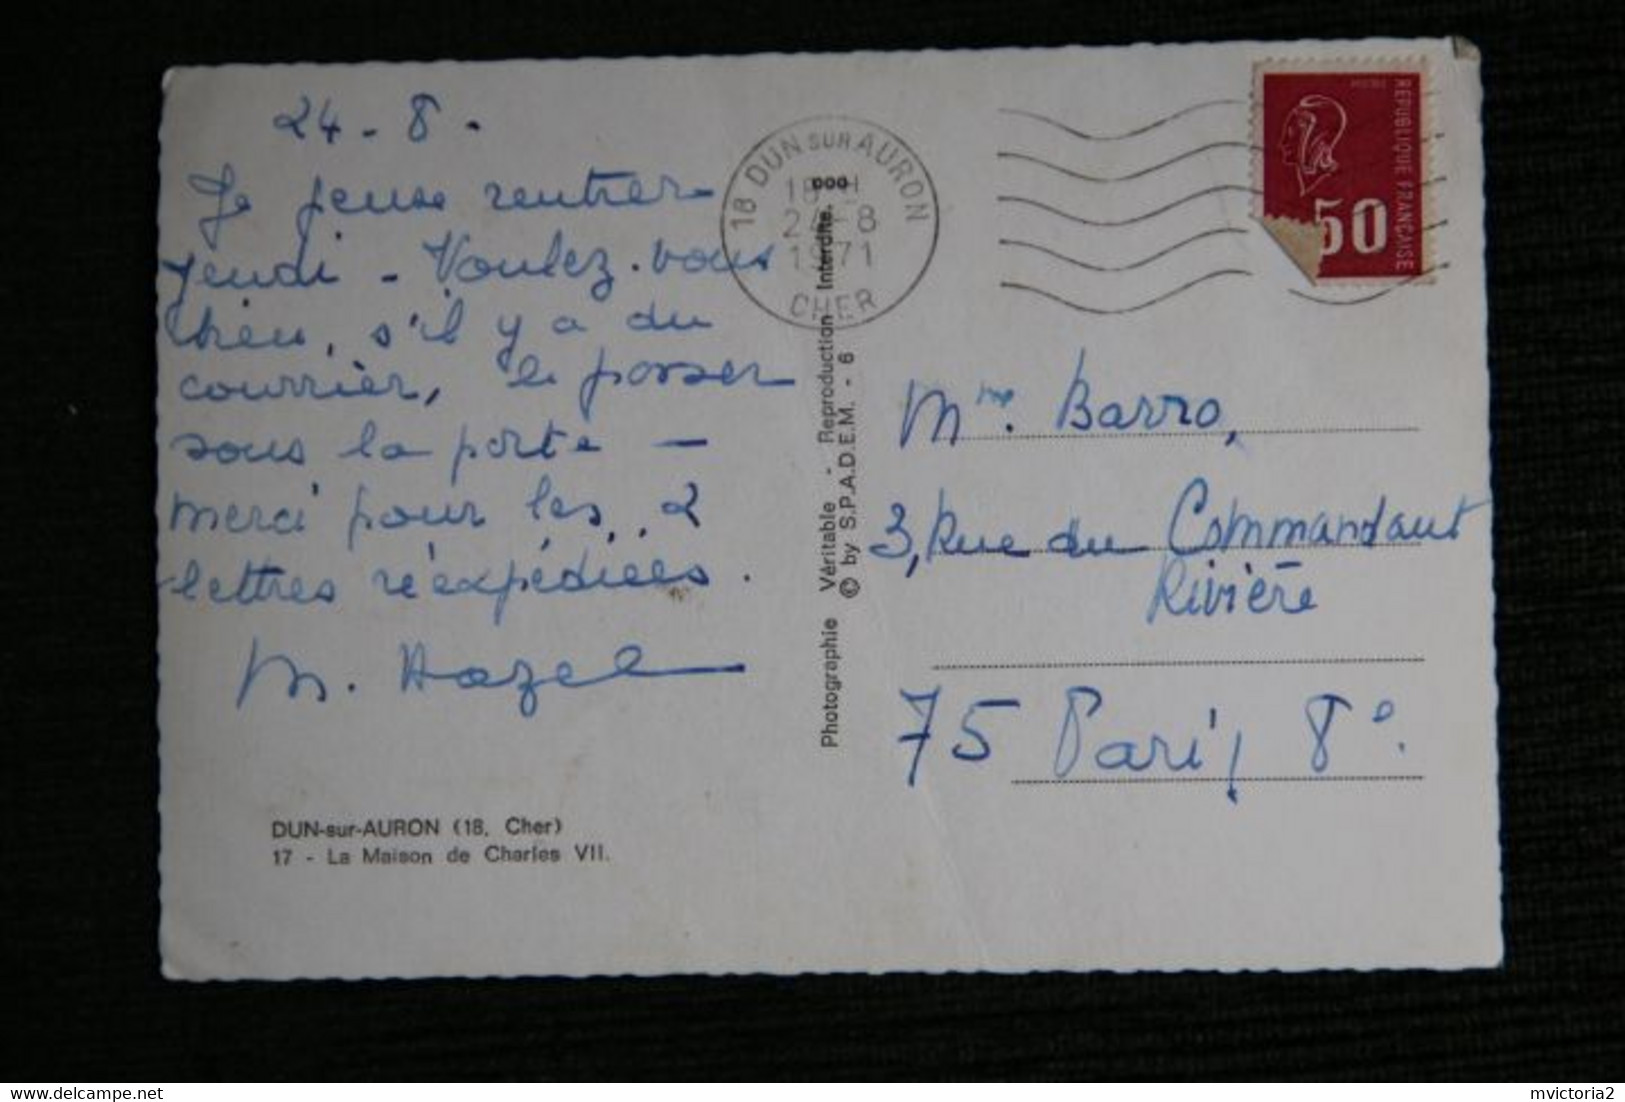 24 - 8 -
Je pense rentrer
jeudi - Voulez-vous
bien, s'il y a du
courrier, le passer
sous la porte -
merci pour les 2
lettres réexpédiées.
M. Hazel
DUN-sur-AURON (18. Cher)
17 - La Maison de Charles VII.
Photographie Véritable - Reproduction Interdite.
© by S.P.A.D.E.M. - 6
18 DUN SUR AURON
24-8
1971
CHER
REPUBLIQUE FRANÇAISE
50
Mme. Barro,
3, Rue du Commandant
Rivière
75 Paris 8e.
mvictoria2